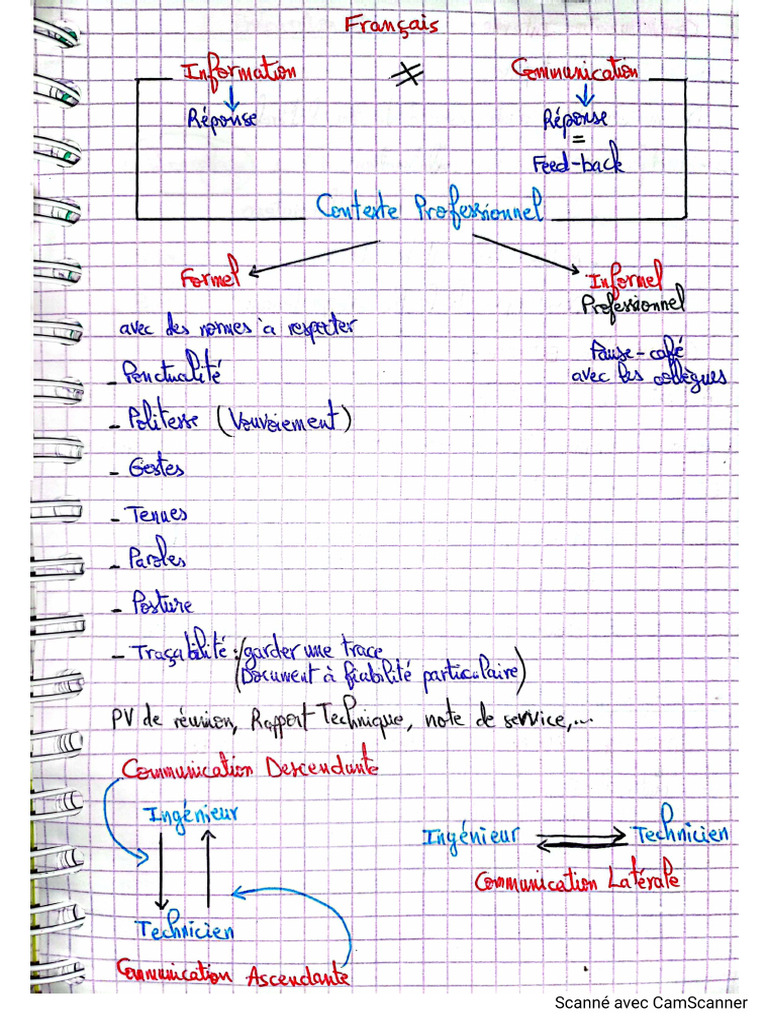 Français
Information ≠ Communication
Réponse
Réponse
=
Feed-back
Contexte Professionnel
Formel
Informel
Professionnel
avec des normes à respecter
Pause-café
avec les collègues
- Ponctualité
- Politesse (Vouvoiement)
- Gestes
- Tenues
- Paroles
- Posture
- Traçabilité :/garder une trace
(Document à fiabilité particulaire)
PV de réunion, Rapport Technique, note de service,...
Communication Descendante
Ingénieur
Technicien
Communication Ascendante
Ingénieur Technicien
Communication Latérale
Scanné avec CamScanner